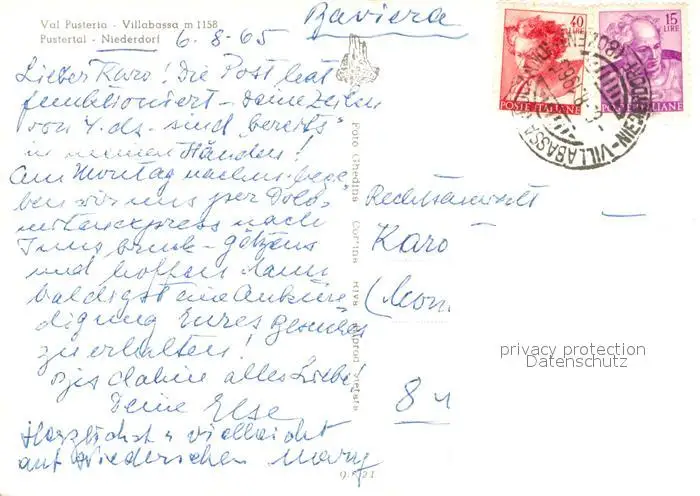 Baviera
Val Pusteria - Villabassa m 1158
Pustertal - Niederdorf
6-8-65
40 LIRE
15 LIRE
POSTE ITALIANE
POSTE ITALIANE
Lieber Karo! Die Post hat
funktioniert - deine Zeilen
von 4. ds. sind bereits
in meinen Händen!
Am Montag nachm. bege-
ben wir uns per Dolo-
mitenexpress nach
Innsbruck - Götzens
und hoffen dann
baldigst eine Ankün-
digung Eures Besuches
zu erhalten!
Bis dahin alles Liebe!
Deine Else
Herzlichst u vielleicht
auf Wiedersehen
Foto Ghedina Cortina
Rechtsanwalt
Karo
8
privacy protection
Datenschutz